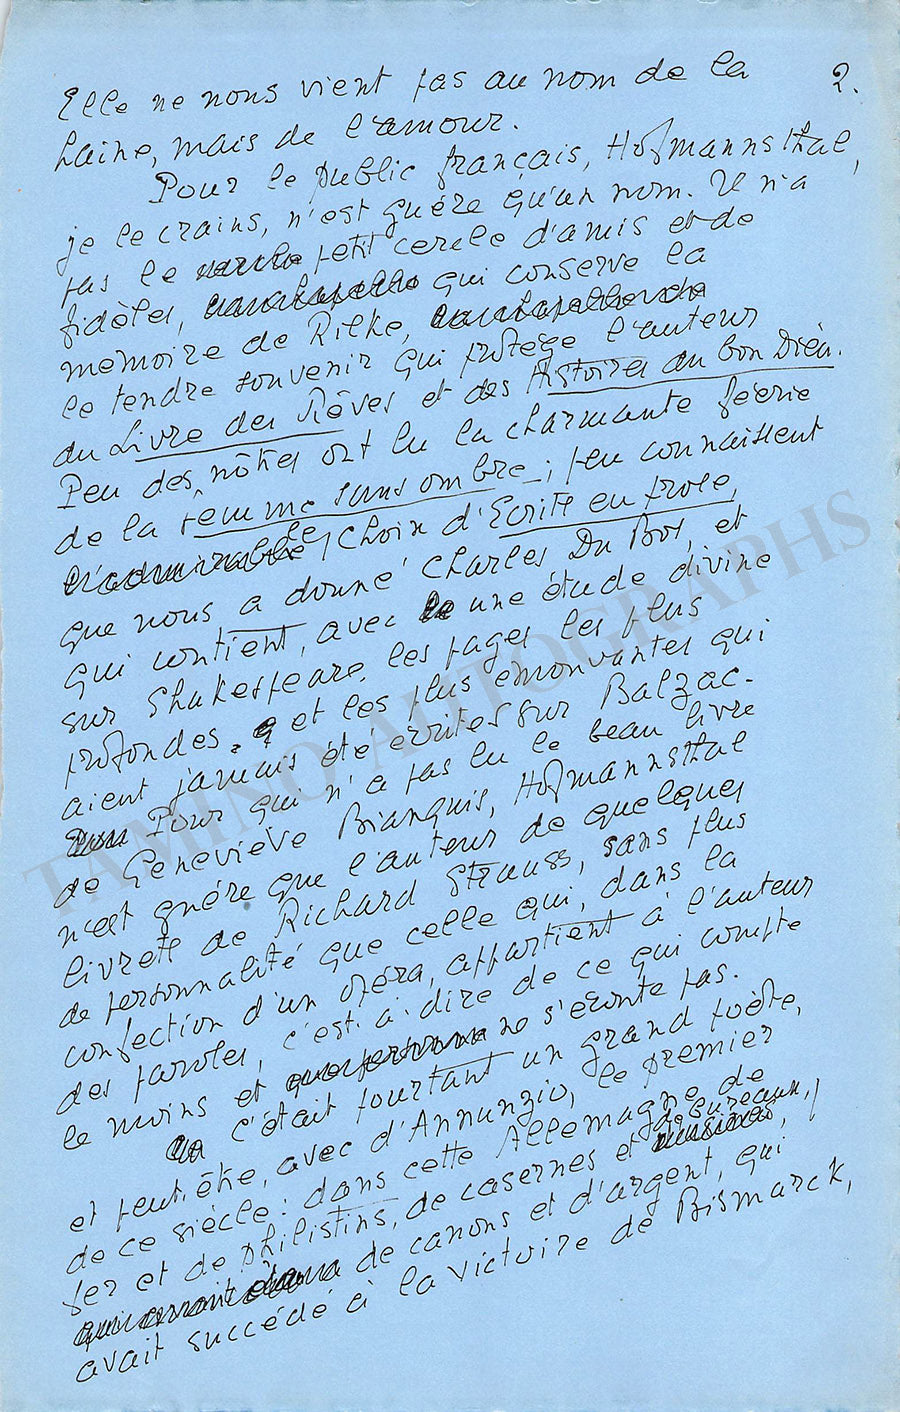 2.
Elle ne nous vient pas au nom de la
haine, mais de l'amour.
Pour le public français, Hofmannsthal,
je le crains, n'est guère qu'un nom. Il n'a
pas le petit cercle d'amis et de
fidèles, qui conserve la
mémoire de Rilke,
le tendre souvenir qui protège l'auteur
du Livre des Rêves et des Histoires du bon Dieu.
Peu des nôtres ont lu la charmante féerie
de la Femme sans ombre ; peu connaissent
l'admirable le choix d'Ecrits en prose,
que nous a donné Charles Du Bos, et
qui contient, avec une étude divine
sur Shakespeare, les pages les plus
profondes, et les plus émouvantes qui
aient jamais été écrites sur Balzac.
Pour qui n'a pas lu le beau livre
de Geneviève Bianquis, Hofmannsthal
n'est guère que l'auteur de quelques
livrets de Richard Strauss, sans plus
de personnalité que celle qui, dans la
confection d'un opéra, appartient à l'auteur
des paroles, c'est-à-dire de ce qui compte
le moins et que personne ne s'écoute pas.
C'était pourtant un grand poète,
et peut-être, avec d'Annunzio, le premier
de ce siècle : dans cette Allemagne de
fer et de philistins, de casernes et de bureaux,
de canons et d'argent, qui
avait succédé à la victoire de Bismarck,
TAMINO AUTOGRAPHS